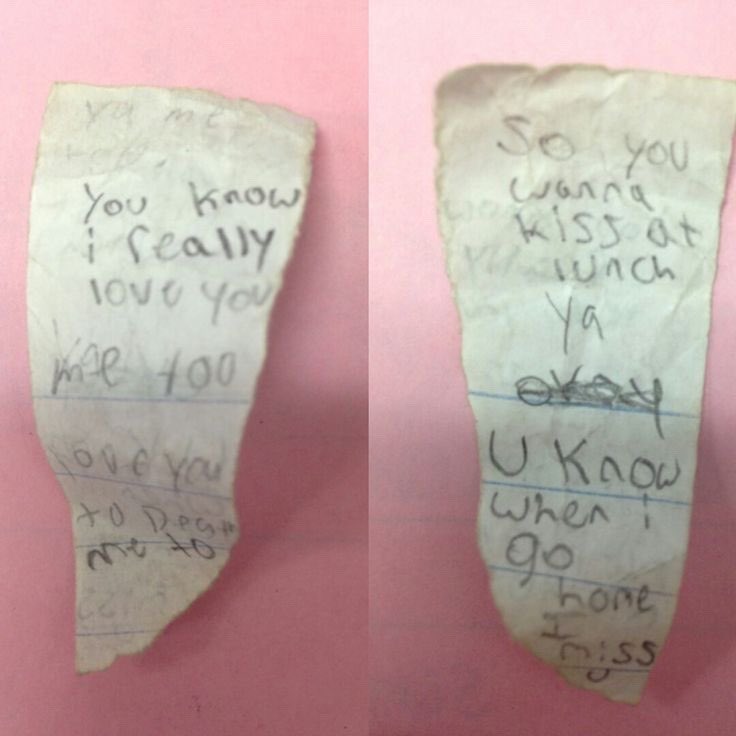 ya me
You know
i really
love you
me too
love you
to Death
me to
So you
wanna
kiss at
lunch
ya
okay
U Know
when i
go
home
I
miss